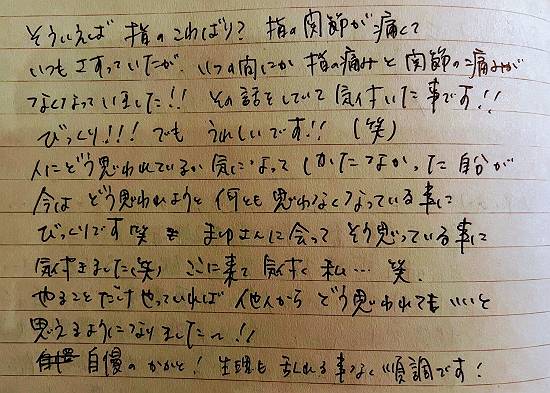 そういえば 指のこわばり? 指の関節が痛くて
いつもさすっていたが、いつの間にか 指の痛みと関節の痛みが
なくなっていました!! その話をしていて 気付いた事です!!
びっくり!!! でも うれしいです!! (笑)
人にどう思われているか気になって しかたなかった 自分が
今は どう思われようと 何とも思わなくなっている事に
びっくりです 笑 まゆさんに会って そう思っている事に
気付きました(笑) ここに来て 気付く 私… 笑.
やることだけやっていれば 他人から どう思われてもいいと
思えるようになりました〜!!
自慢のかかと! 生理も 乱れる事なく 順調です!